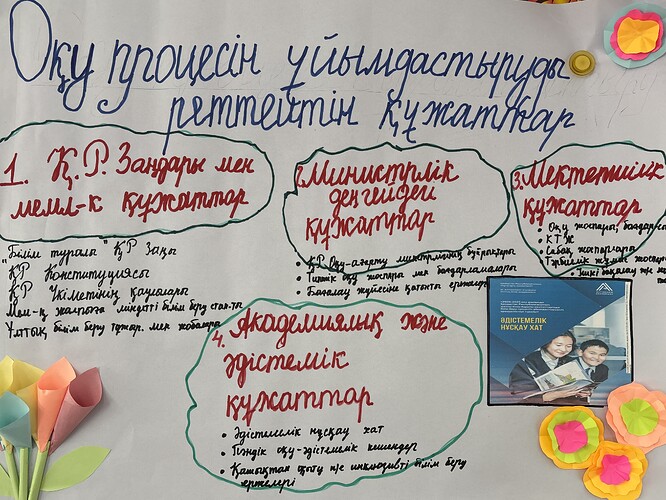 Оқу процесін ұйымдастыруды
реттейтін құжаттар
1. Қ.Р. Заңдары мен
мемл-к құжаттар
"Білім туралы" ҚР Заңы
ҚР Конституциясы
ҚР Үкіметінің қаулылары
Мем-қ жалпыға міндетті білім беру стан-ты
Ұлттық білім беру тұжыр. мен жобалары
2. Министрлік
деңгейдегі
құжаттар
• ҚР Оқу-ағарту министрінің бұйрықтары
• Типтік оқу жоспары мен бағдарламалары
• Бағалау жүйесіне қатысты ережелер
3. Мектепішілік
құжаттар
• Оқу жоспары,
• КТЖ
• Сабақ жоспарлары
• Тәрбиелік жұмыс
• Ішкі бақылау және
ӘДІСТЕМЕЛІК
НҰСҚАУ ХАТ
4. Академиялық және
әдістемік
құжаттар
• Әдістемелік нұсқау хат
• Пәндік оқу-әдістемелік кешендер
• Қашықтан оқыту н/е инклюзивті білім беру
ережелері